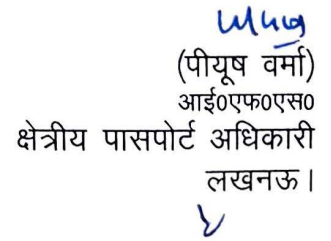 (पीयूष वर्मा)
आई०एफ०एस०
क्षेत्रीय पासपोर्ट अधिकारी
लखनऊ।